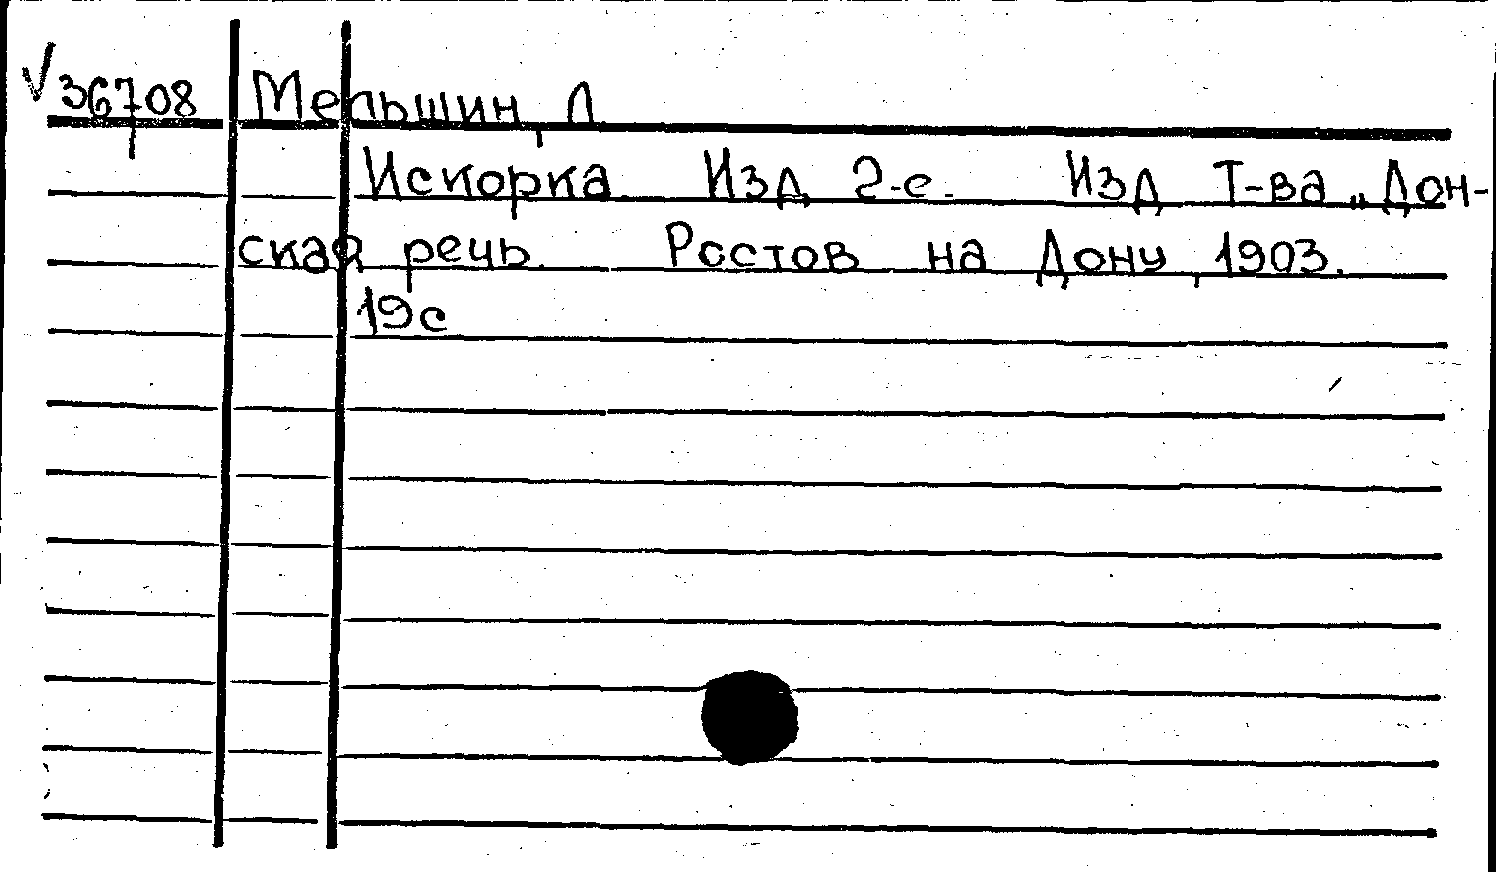 √36708 Мельшин, Л.
Искорка. Изд. 2-е. Изд. Т-ва „Дон-
ская речь. Ростов на Дону, 1903.
19с